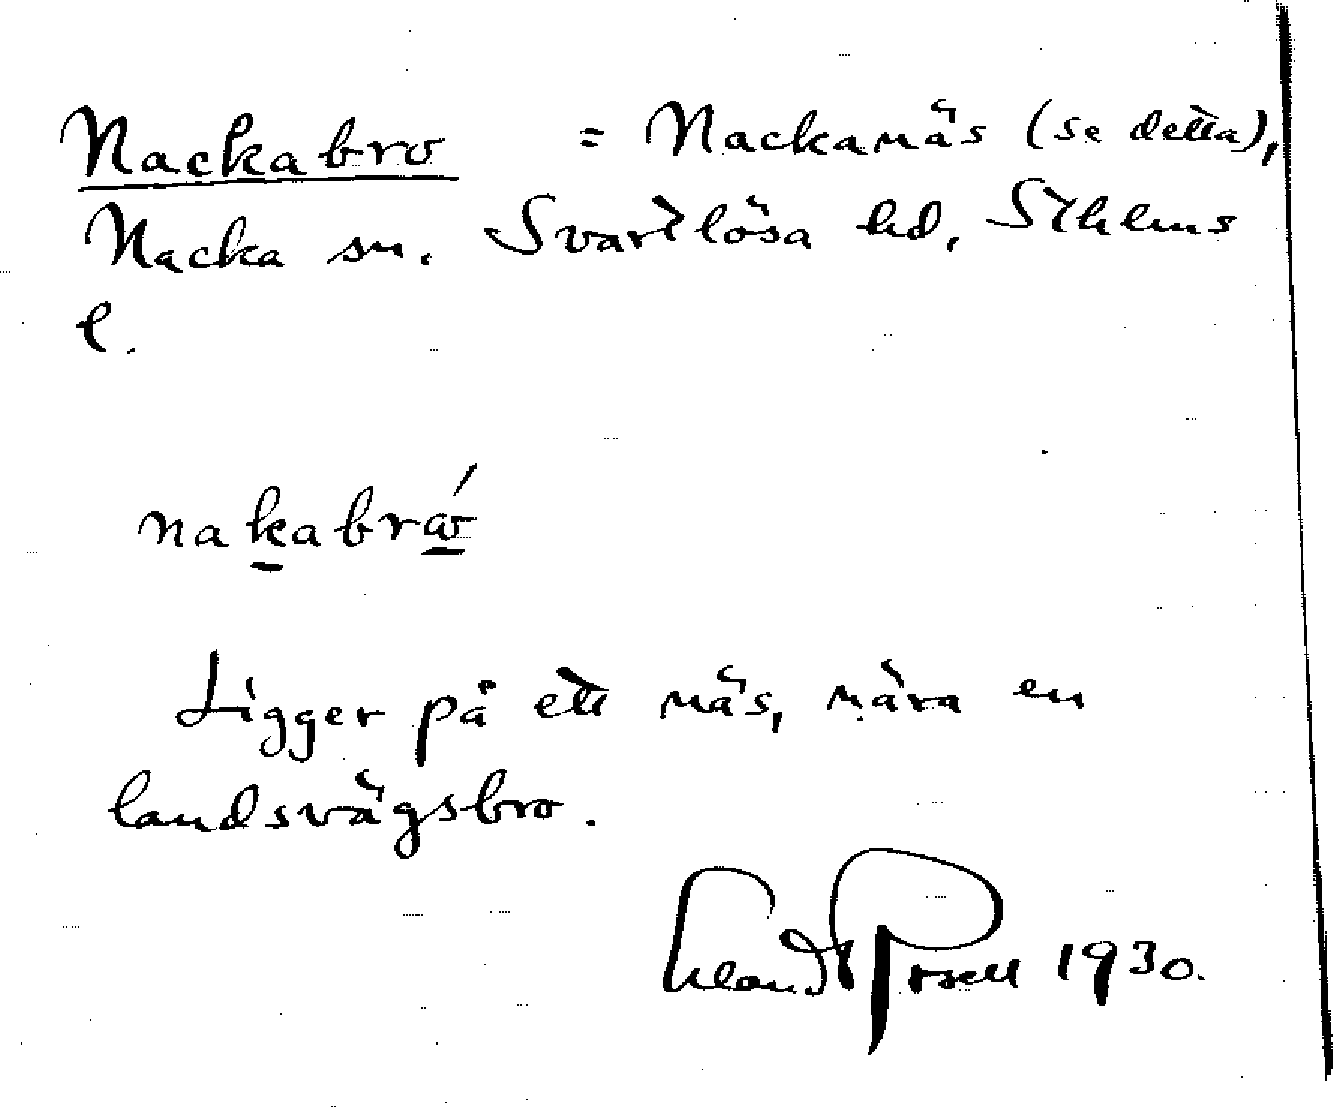 Nackabro = Nackanäs (se detta),
Nacka sn. Svartlösa hd, Sthlms
l.
nakabrώ
Ligger på ett näs, nära en
landsvägsbro.
1930.